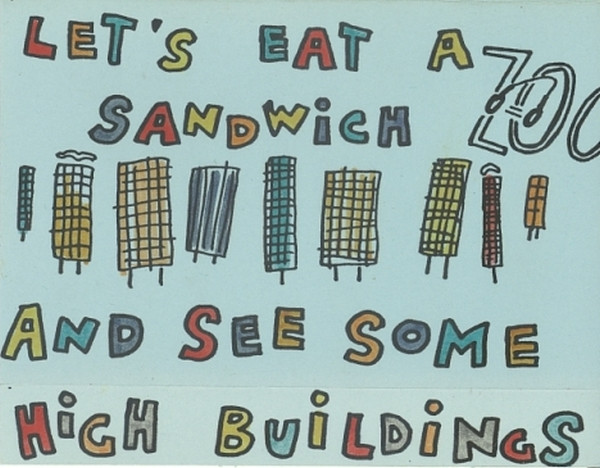 LET'S EAT A
ZOO
SANDWiCH
AND SEE SOME
HiGH BUiLDiNGS